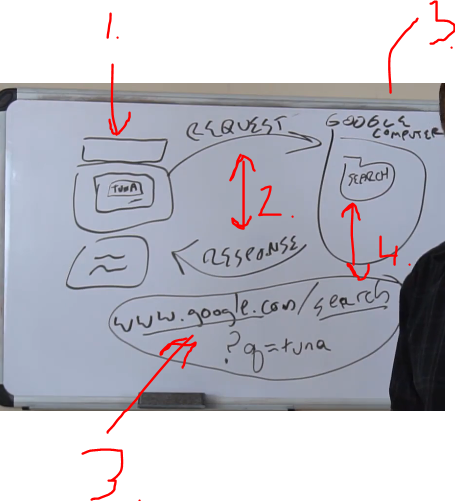 1.
3.
REQUEST
GOOGLE
COMPUTER
TUNA
SEARCH
2.
RESPONSE
4.
www.google.com/search
?q=tuna
3.